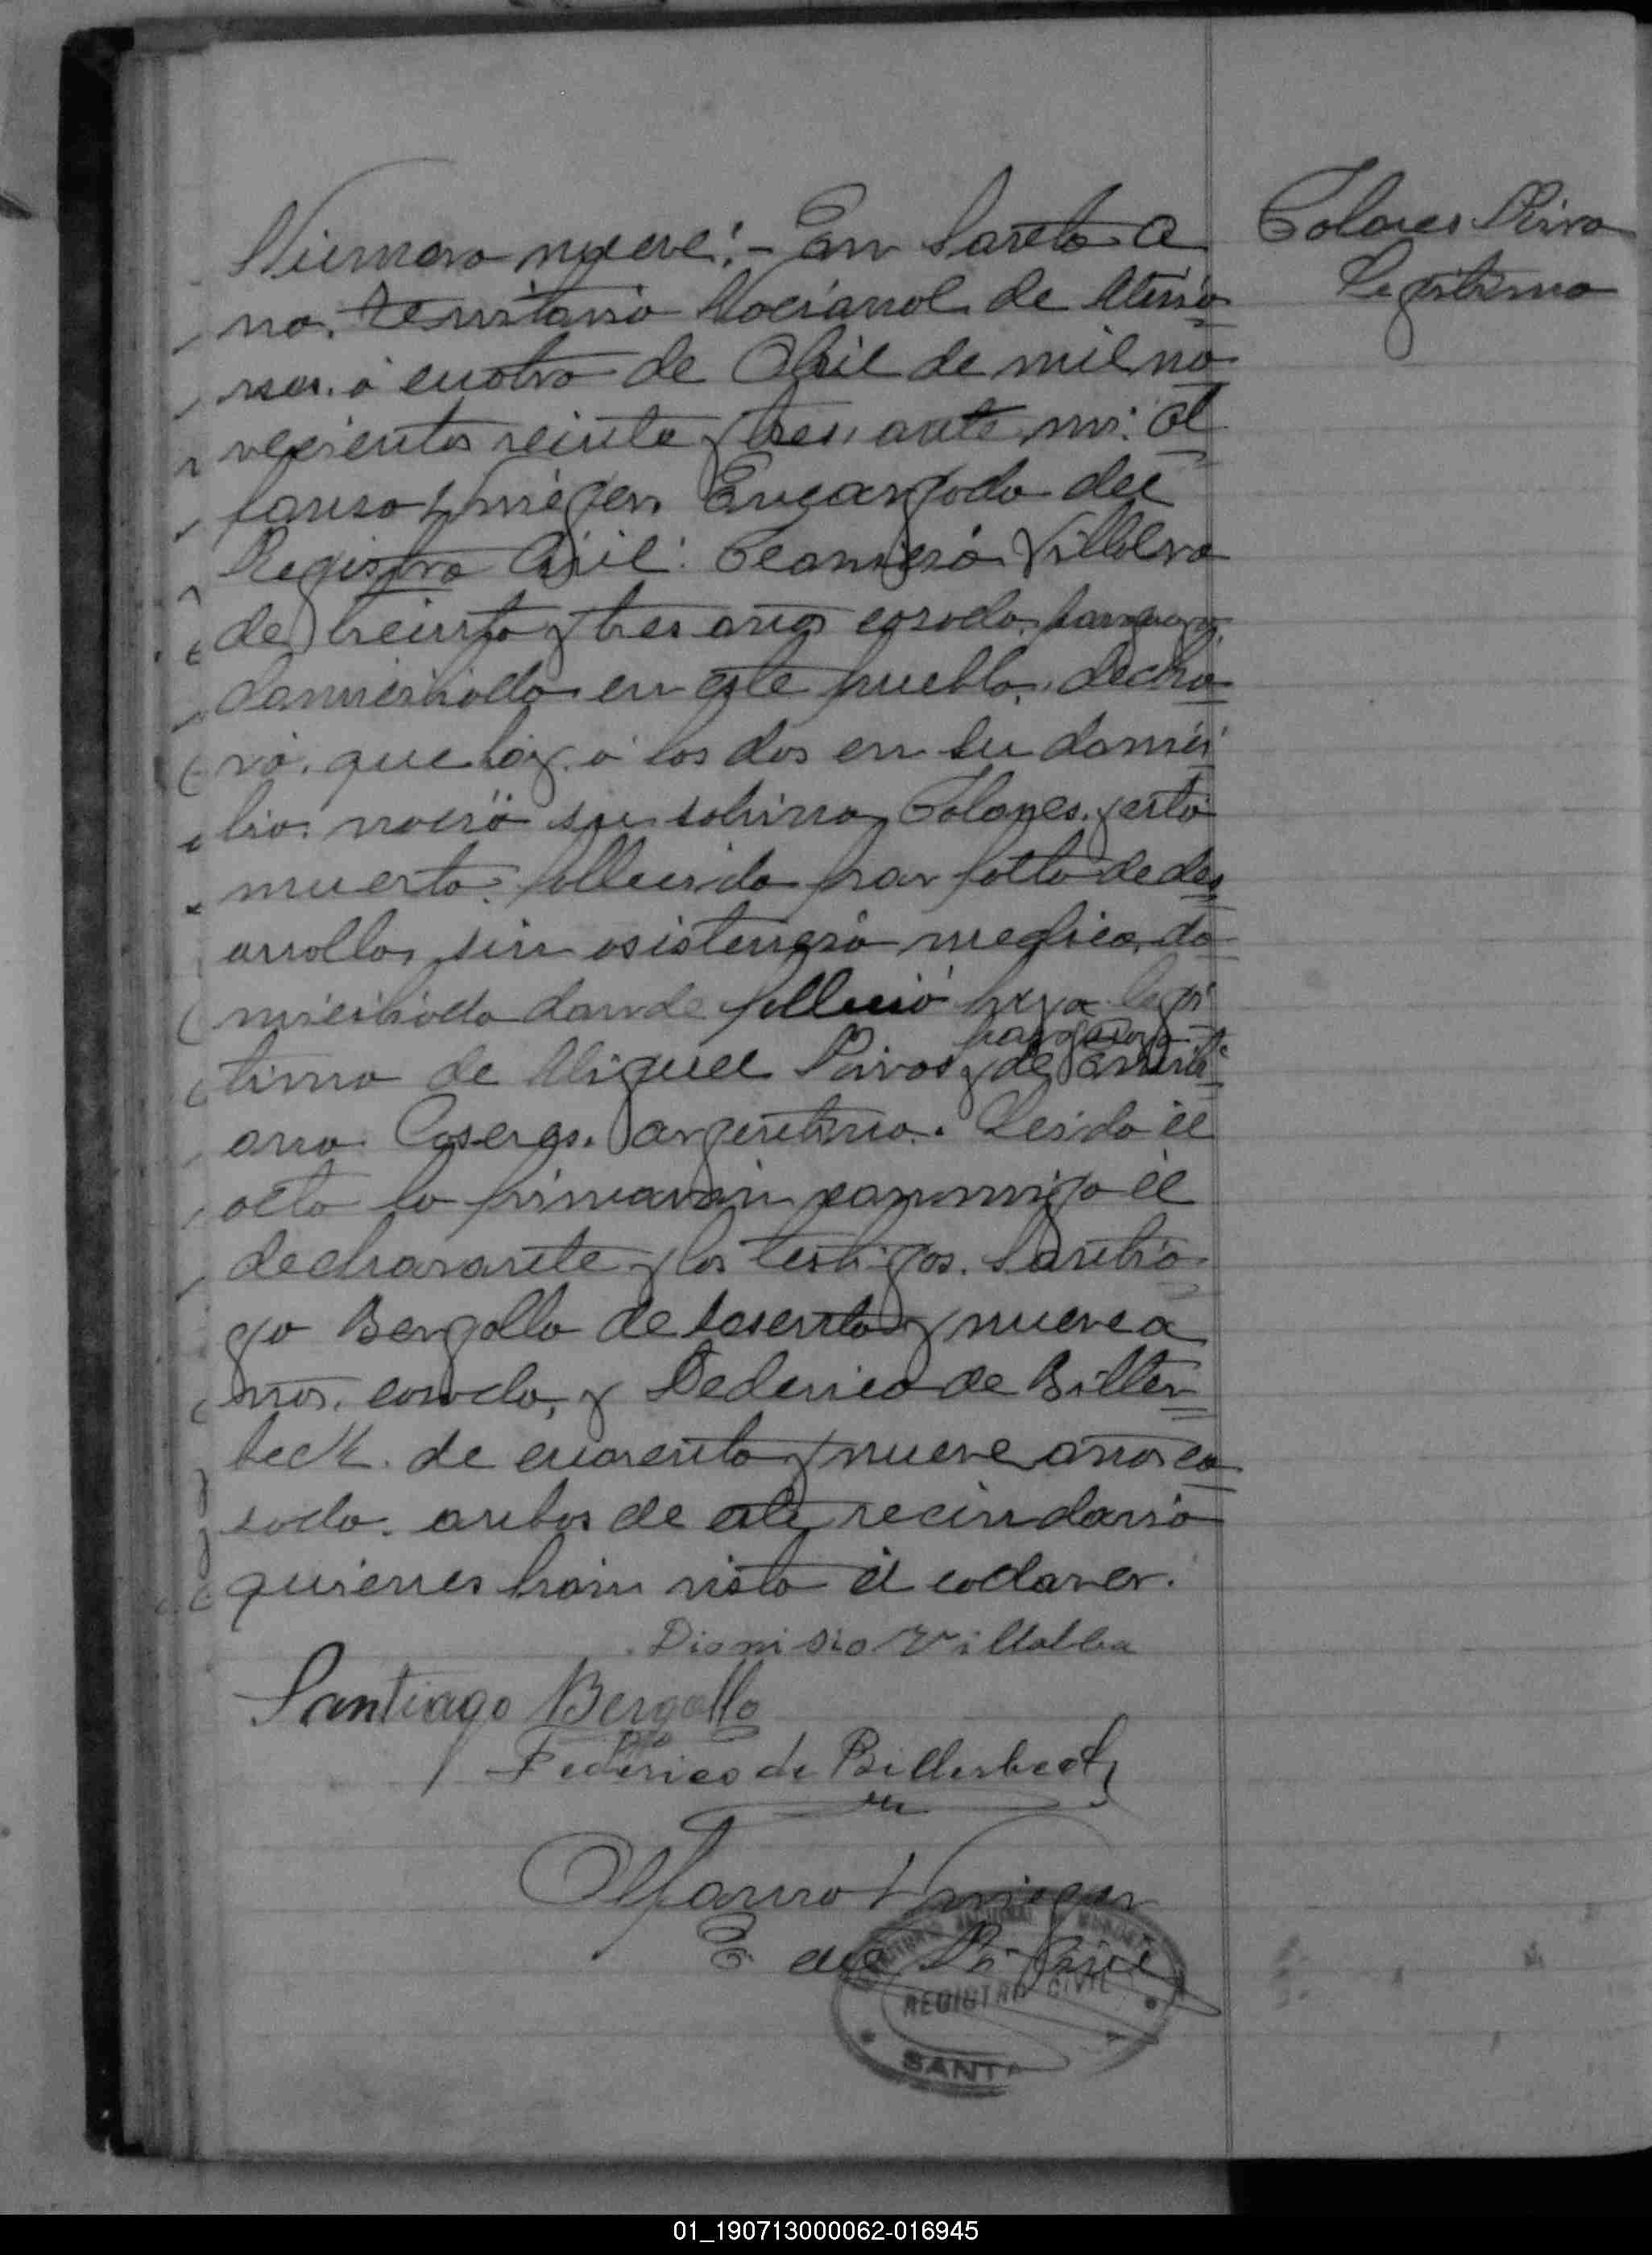 Número nueve:- En Santa A
na. territorio Nacional de Misio
nes. á cuatro de Abril de mil no
vecientos veinte y tres, ante mi: Al
fonso Encargado del
Registro Civil: Villalva
de treinta y tres años casado, paraguayo,
domiciliado en este pueblo, declra
ró. que hoy. á las dos en su domici
lio. nació su sobrina Dolores. y está
muerta. fallecida por falta de des
arrollo, sin asistencia medica, do
miciliada donde falleció hija legi
paraguayo
tima de Miguel Paiva y de Emili
ana Caseres. argentina. Leida el
acta la firmaran conmigo el
declrarante y los testigos. Santia
go Bergallo de sesenta y nueve a
ños. casado, y Federico de Biller
beck. de cuarenta y nueve años ca
sado. anbos de este vecindario
quienes han visto el cadaver.
Dionisio Villalba
Santiago Bergallo
Federico de Billerbeck
Alfonso
E. del R. Civil
REGISTRO CIVIL
SANTA
Dolores Paiva
Legitima
01_190713000062-016945